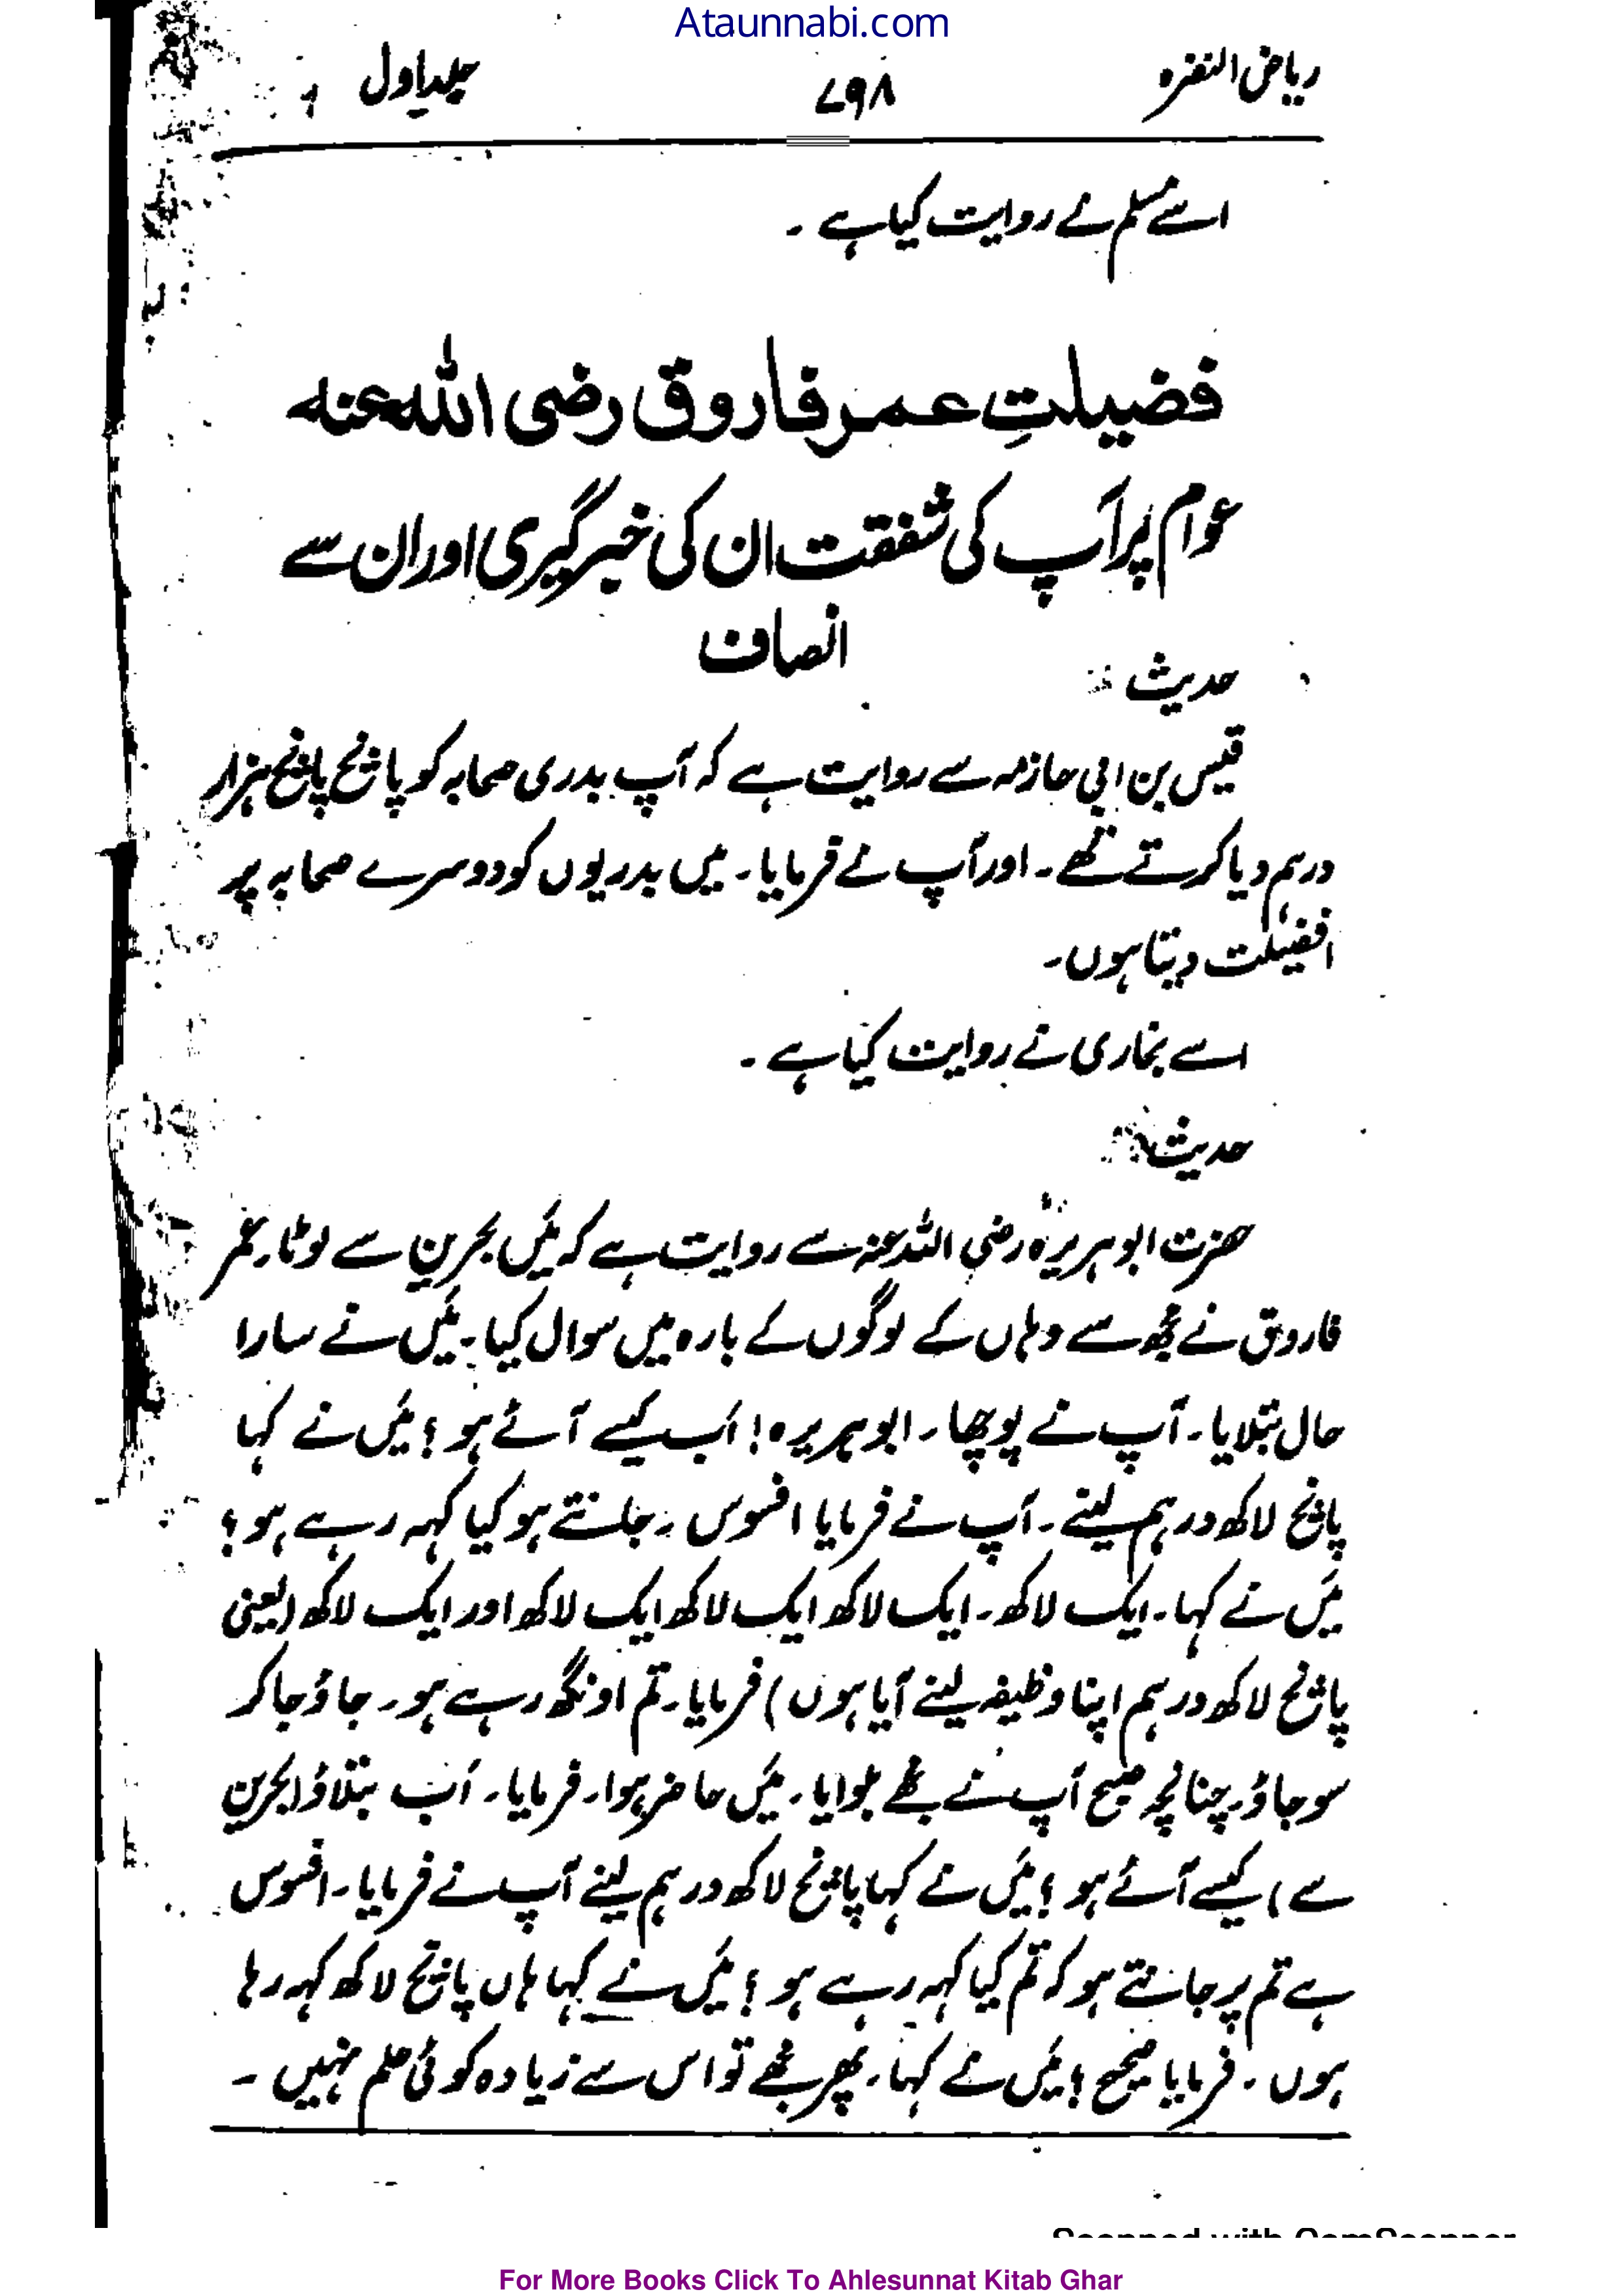 Ataunnabi.com
ریاض النضرہ ۷۹۸ جلد اول
اسے مسلم نے روایت کیا ہے ۔
فضیلتِ عمر فاروق رضی اللہ عنہ
عوام پر آپ کی شفقت ان کی خبر گیری اور ان سے
انصاف
حدیث
قیس بن ابی حازمہ سے روایت ہے کہ آپ بدری صحابہ کو پانچ پانچ ہزار
درہم دیا کرتے تھے ۔ اور آپ نے فرمایا ۔ میں بدریوں کو دوسرے صحابہ پر
افضیلت دیتا ہوں ۔
اسے بخاری نے روایت کیا ہے ۔
حدیث
حضرت ابوہریرہ رضی اللہ عنہ سے روایت ہے کہ میَں بحرین سے لوٹا ۔ عمر
فاروق نے مجھ سے وہاں کے لوگوں کے بارہ میں سوال کیا ۔ میَں نے سارا
حال بتلایا ۔ آپ نے پوچھا ۔ ابوہریرہ ! اَب کیسے آئے ہو ؟ میَں نے کہا
پانچ لاکھ درہم لینے ۔ آپ نے فرمایا افسوس ۔ جانتے ہو کیا کہہ رہے ہو ؟
میَں نے کہا ۔ ایک لاکھ ۔ ایک لاکھ ایک لاکھ ایک لاکھ اور ایک لاکھ (یعنی
پانچ لاکھ درہم اپنا وظیفہ لینے آیا ہوں) فرمایا ۔ تم اونگھ رہے ہو ۔ جاؤ جا کر
سو جاؤ ۔ چنانچہ صبح آپ نے مجھے بلوایا ۔ میَں حاضر ہوا ۔ فرمایا ۔ اَب بتلاؤ (بحرین
سے) کیسے آئے ہو ؟ میَں نے کہا پانچ لاکھ درہم لینے آپ نے فرمایا ۔ افسوس
ہے تم پر جانتے ہو کہ تم کیا کہہ رہے ہو ؟ میَں نے کہا ہاں پانچ لاکھ کہہ رہا
ہوں ۔ فرمایا صحیح ؟ میَں نے کہا ۔ پھر مجھے تو اس سے زیادہ کوئی علم نہیں ۔
Scanned with CamScanner
For More Books Click To Ahlesunnat Kitab Ghar